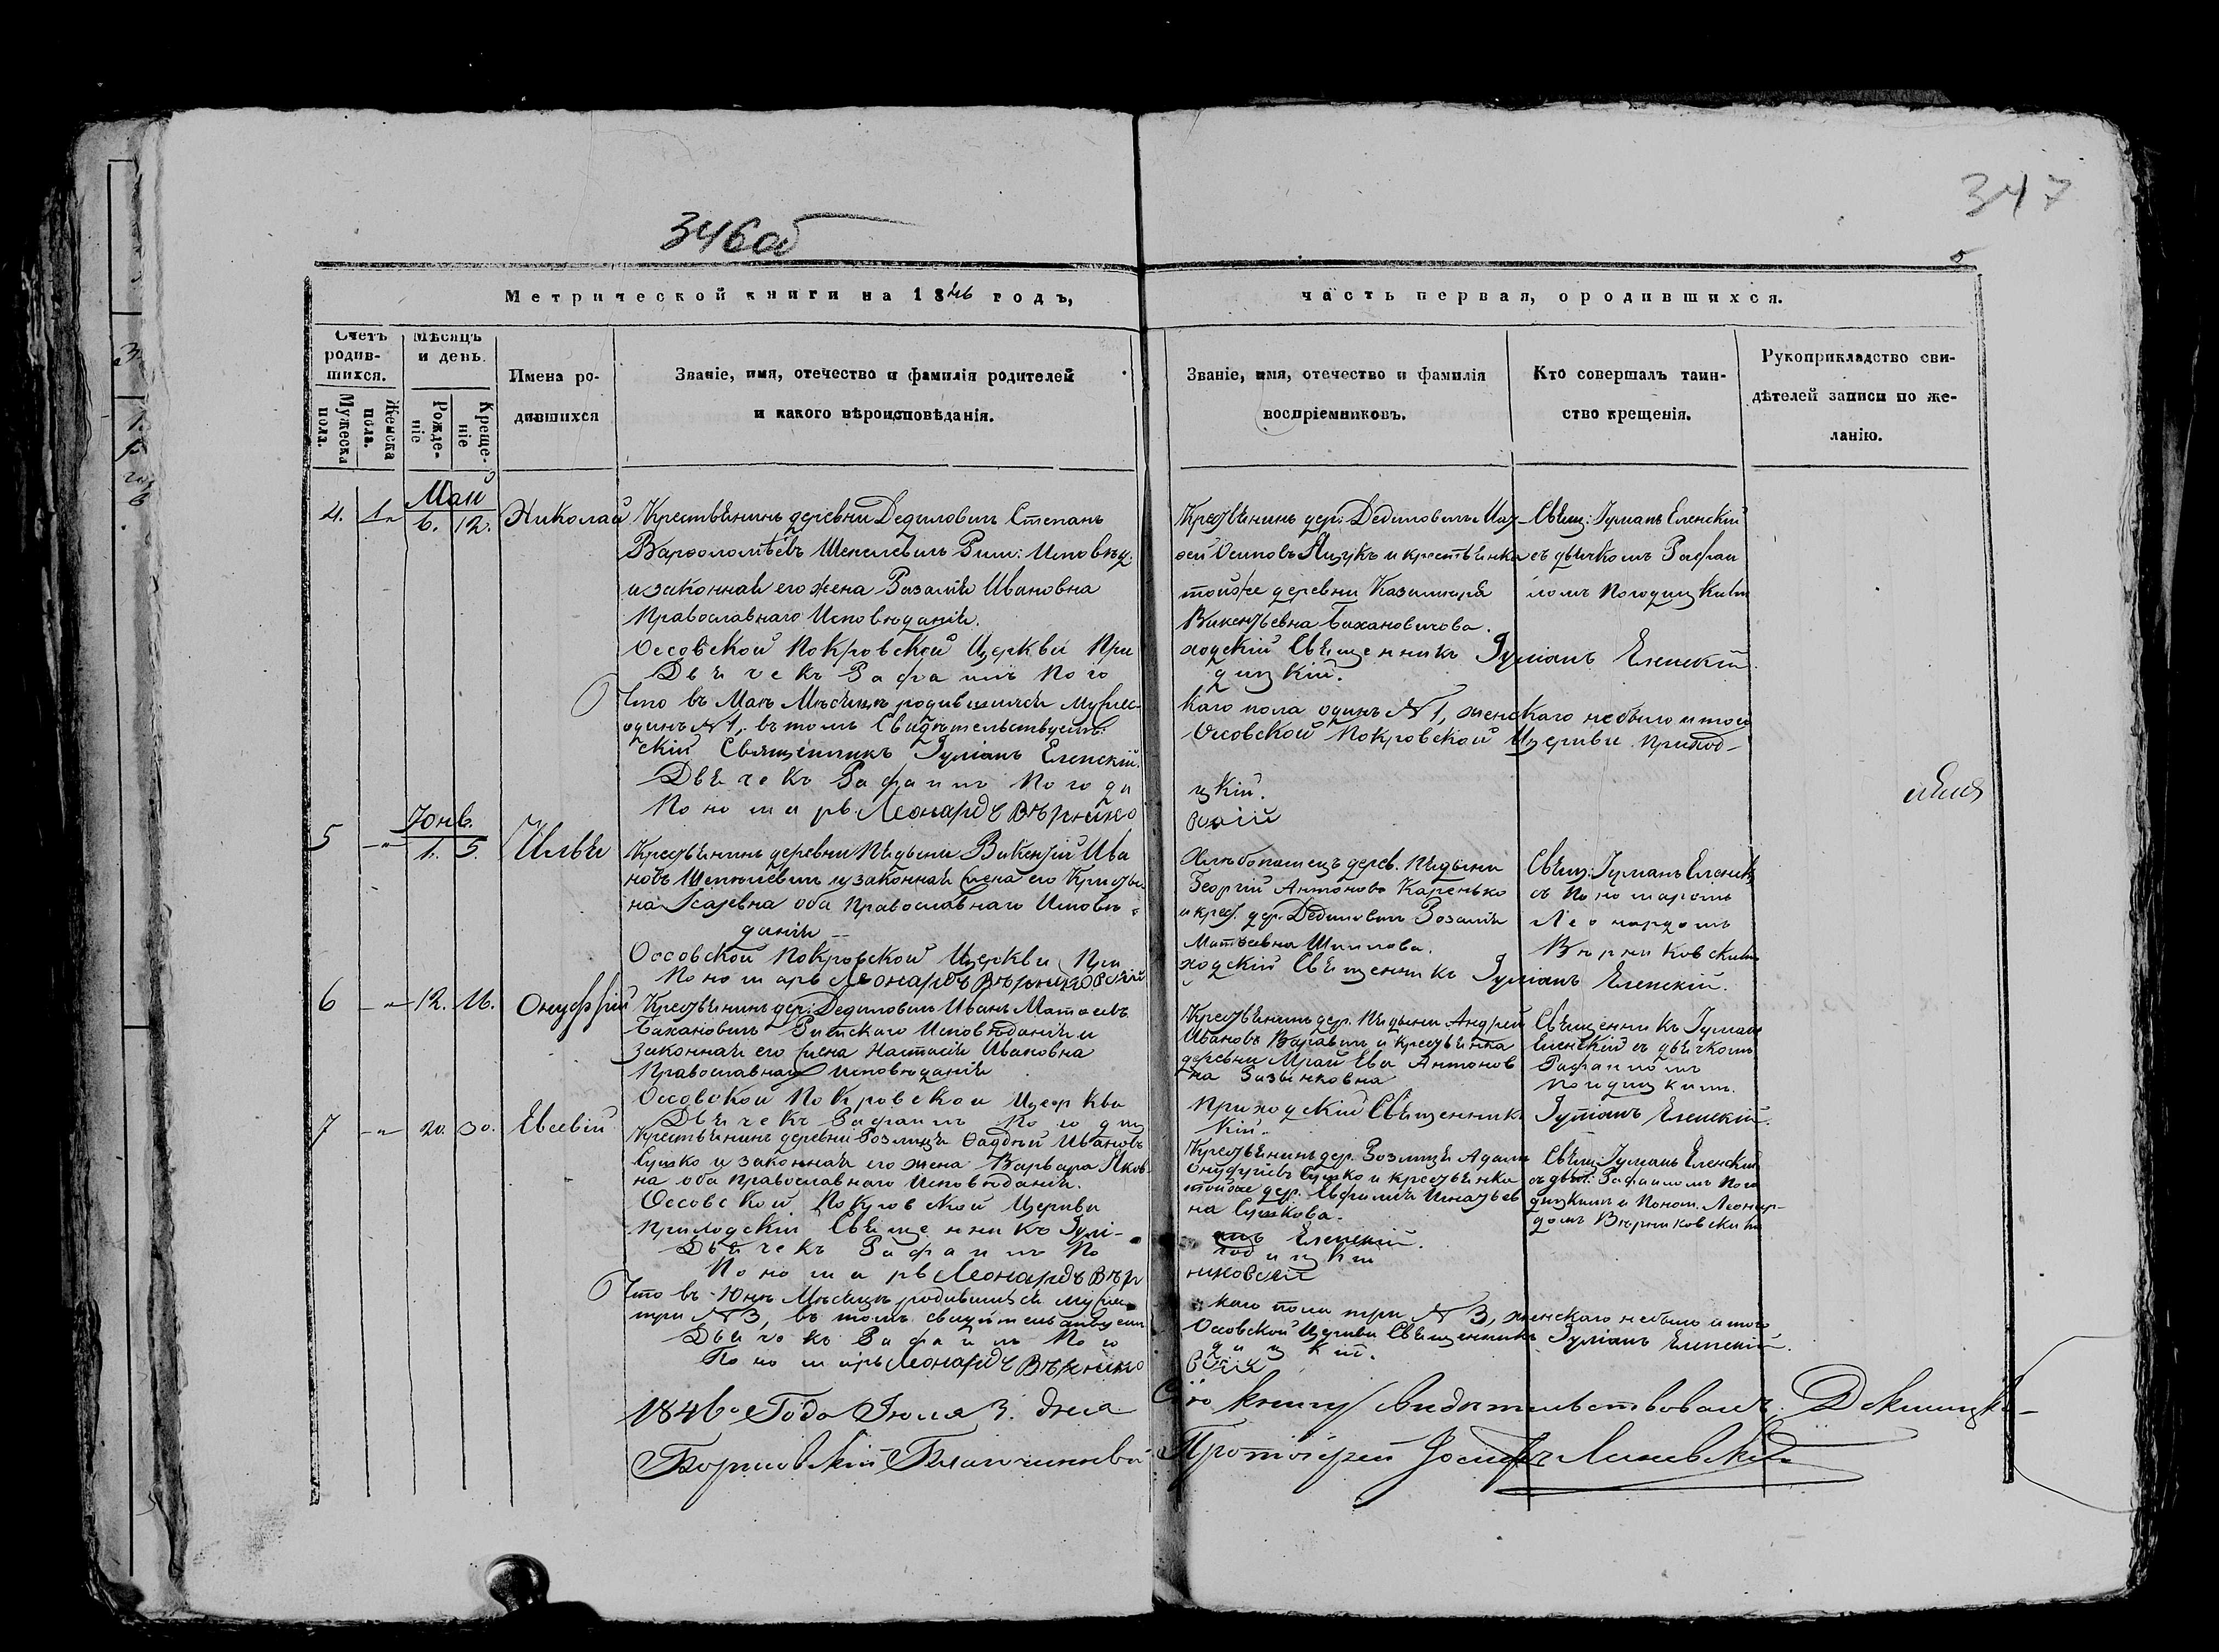 346об
347
5
Метрической книги на 1846 годъ,
часть первая, ородившихся.
Счетъ родив-
шихся.
Мужеска пола.
Женска пола.
Мѣсяцъ и день.
Рожде-
ніе
Креще-
ніе
Имена ро-
дившихся
Званіе, имя, отечество и фамилія родителей
и какого вѣроисповѣданія.
Званіе, имя, отечество и фамилія
воспріемниковъ.
Кто совершалъ таин-
ство крещенія.
Рукоприкладство сви-
дѣтелей записи по же-
ланію.
Маи
4. 6. 12. Николай
Крестьянинъ деревни Дедиловичъ Степанъ
Варфоломѣевъ Рим: Исповѣд.
и законная его жена Розалія Ивановна
Православнаго Исповѣданія.
Крестьянинъ дер: Дедиловичъ
Осиповъ и крестьянка
тойже деревни Казимира
Викентьевна Бахановичова.
Свящ: Іуліанъ Еленскій
съ дьячкомъ Рафаи
ломъ Погодицкимъ
Оссовской Покровской Церкви При
ходскій Священникъ Іуліанъ Еленскій.
Дьячекъ Рафаилъ Пого
дицкій.
Что въ Маѣ Мѣсяцѣ родившихся мужес-
каго пола одинъ №1, женскаго небыло итого
одинъ №1, въ томъ Свидѣтельствуемъ:
Оссовской Покровской Церкви Приход-
скій Священникъ Іуліанъ Еленскій.
Дьячекъ Рафаилъ Погоди
цкій.
Пономарь Леонардъ Вѣрнико
вскій
Юнь.
5 1. 5. Илья
Крестьянинъ деревни Викентій Ива
новъ и законная жена его Кристи
на оба Православнаго Исповѣ
данія
дерев.
Георгій Антоновъ Каренько
и крес. дер. Дедиловичъ Розалія
Матѳеевна
Свящ: Іуліанъ Еленск
съ Пономаромъ
Леонардомъ
Вѣрниковскимъ
Оссовской Покровской Церкви При
ходскій Священникъ Іуліанъ Еленскій.
Пономарь Леонардъ Вѣрниковскій
6 12. 16. Онуфрій
Крестьянинъ дер: Дедиловичъ Иванъ Матѳеевъ
Бахановичъ Римскаго Исповѣданія и
законная его жена Настасія Ивановна
Православнаго Исповѣданія
Крестьянинъ дер. Андрей
Ивановъ и крестьянка
деревни Мрай Ева Антонов
на
Священникъ Іуліанъ
Еленскій съ дьячкомъ
Рафаиломъ
Погодицкимъ.
Оссовской Покровской Церкви
Приходскій Священникъ Іуліанъ Еленскій.
Дьячекъ Рафаилъ Погодиц
кій.
7 20. 30. Евсевій
Крестьянинъ деревни Фаддей Ивановъ
Сушко и законная его жена Варвара Яков
на оба православнаго Исповѣданія.
Крестьянинъ дер. Адамъ
Онуфріевъ Сушко и крестьянка
тойже дер. Евфимія Игнатьев
на Сушкова.
Свящ: Іуліанъ Еленскій
съ дьяч: Рафаиломъ Пого
дицкимъ и Поном. Леонар-
домъ Вѣрниковскимъ
Оссовской Покровской Церкви
Приходскій Священникъ Іулі-
анъ Еленскій.
Дьячекъ Рафаилъ По
годицкій
Пономарь Леонардъ Вѣр
никовскій
Что въ Юнѣ Мѣсяцѣ родившихся мужес
каго пола три №3, женскаго небыло итого
три №3, въ томъ свидѣтельствуемъ
Оссовской Церкви Священникъ Іуліанъ Еленскій.
Дьячекъ Рафаилъ Пого
дицкій.
Пономарь Леонардъ Вѣрнико
вскій
1846го Года Іюля 3. дня
Сію книгу свидѣтельствовалъ
Борисовскій Благочинный
Протоіерей Іосифъ